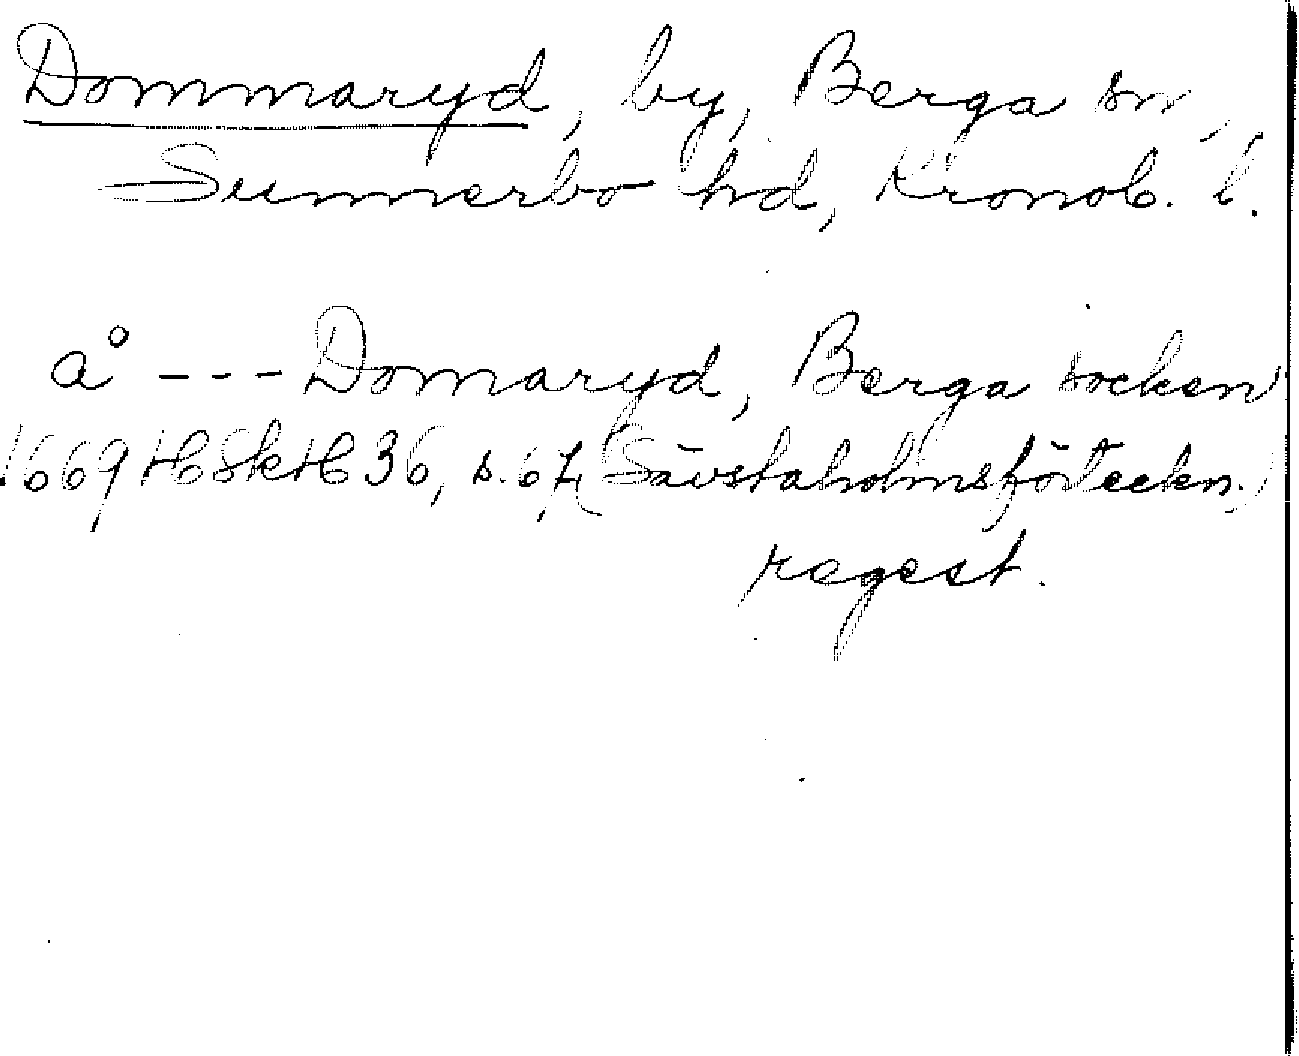 Dommaryd, by, Berga sn,
Sunnerbo hd, Kronob. l.
å --- Domaryd, Berga socken
1669 HSkH 36, s. 67, (Sävstaholmsförteckn.)
regest.